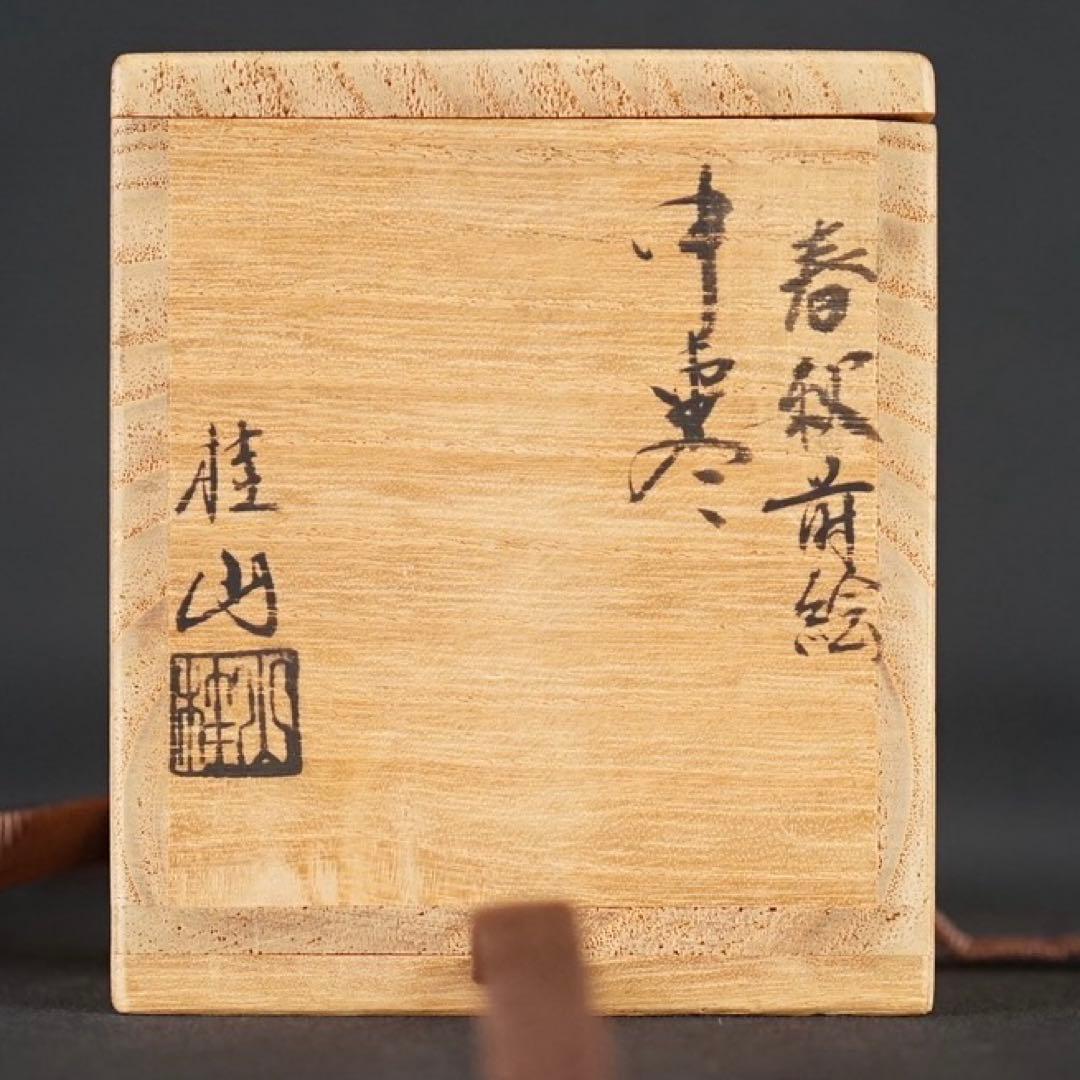 春秋蒔絵
中棗
桂山
桂山